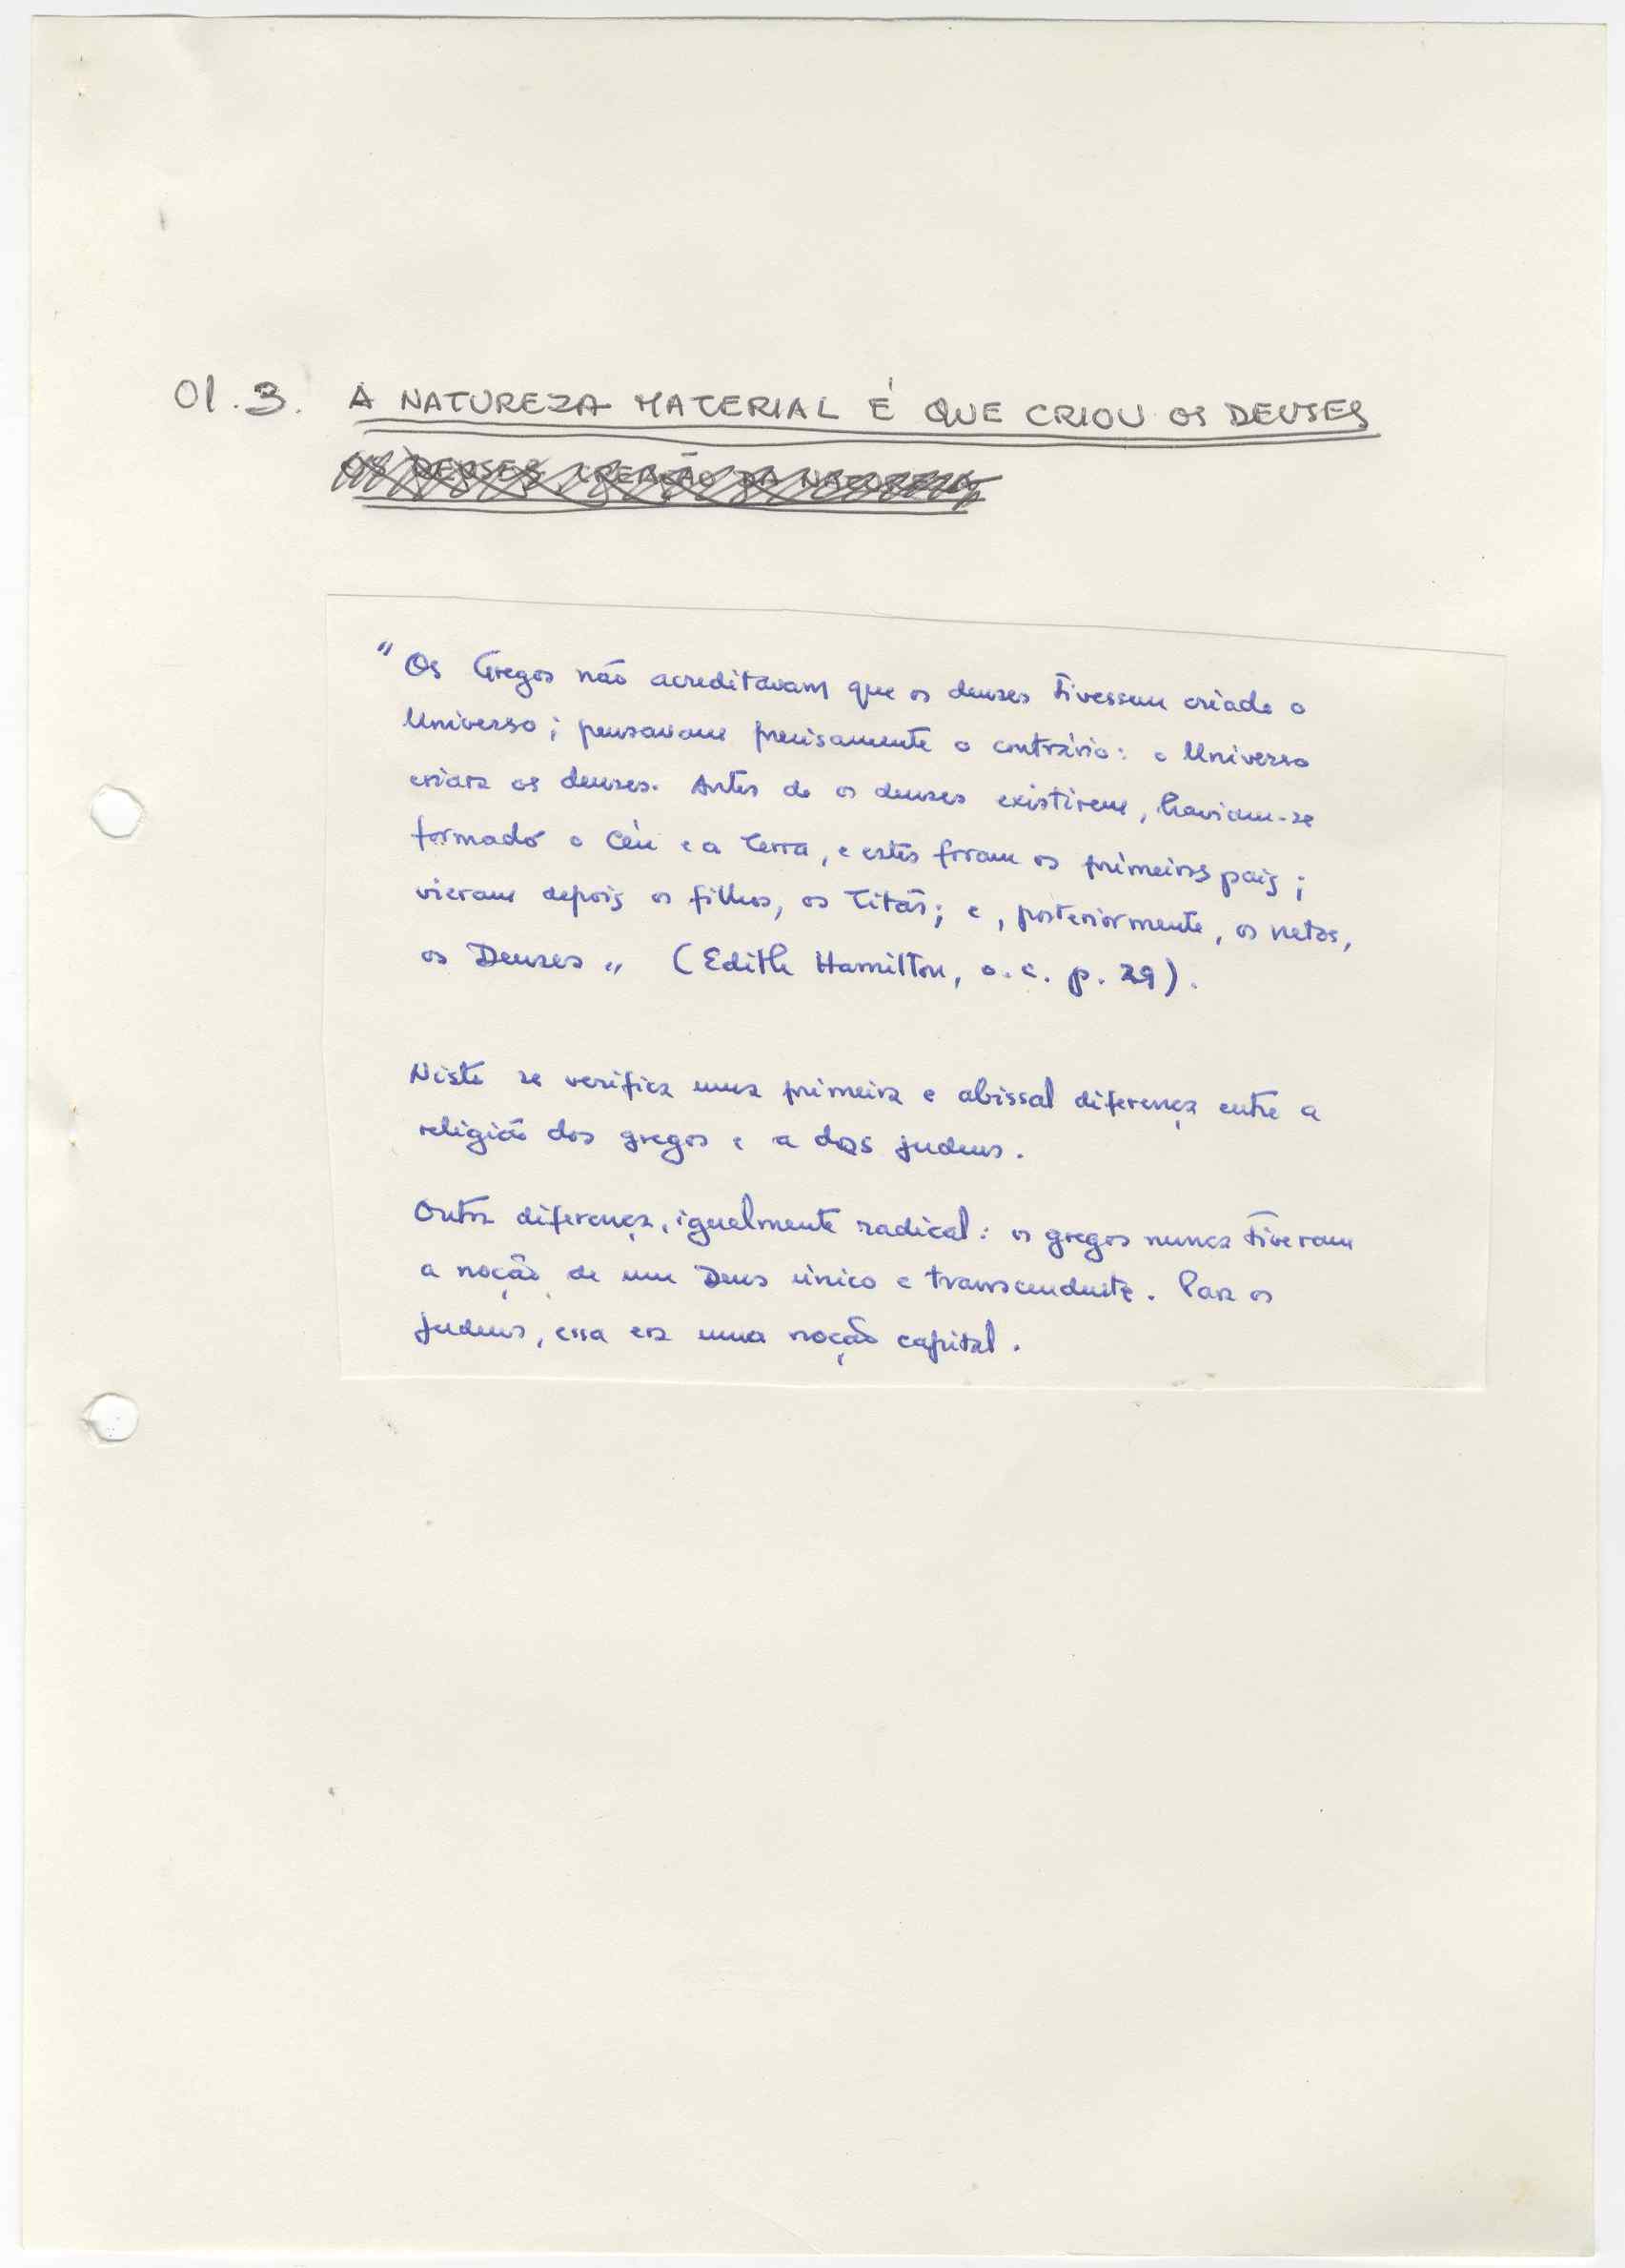 01.3. A NATUREZA MATERIAL É QUE CRIOU OS DEUSES
OS DEUSES, CREAÇÃO DA NATUREZA
"Os Gregos não acreditavam que os deuses tivessem criado o
Universo; pensavam precisamente o contrário: o Universo
criara os deuses. Antes de os deuses existirem, haviam-se
formado o Céu e a Terra, e estes foram os primeiros pais;
vieram depois os filhos, os Titãs; e, posteriormente, os netos,
os Deuses" (Edith Hamilton, o.c. p. 29).
Nisto se verifica uma primeira e abissal diferença entre a
religião dos gregos e a dos judeus.
Outra diferença, igualmente radical: os gregos nunca tiveram
a noção de um Deus único e transcendente. Para os
judeus, essa era uma noção capital.